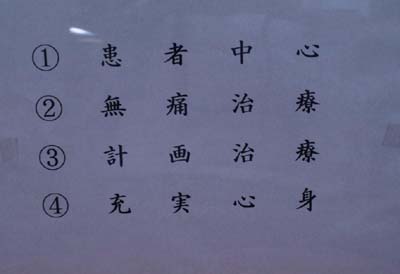 ① 患者中心
② 無痛治療
③ 計画治療
④ 充実心身